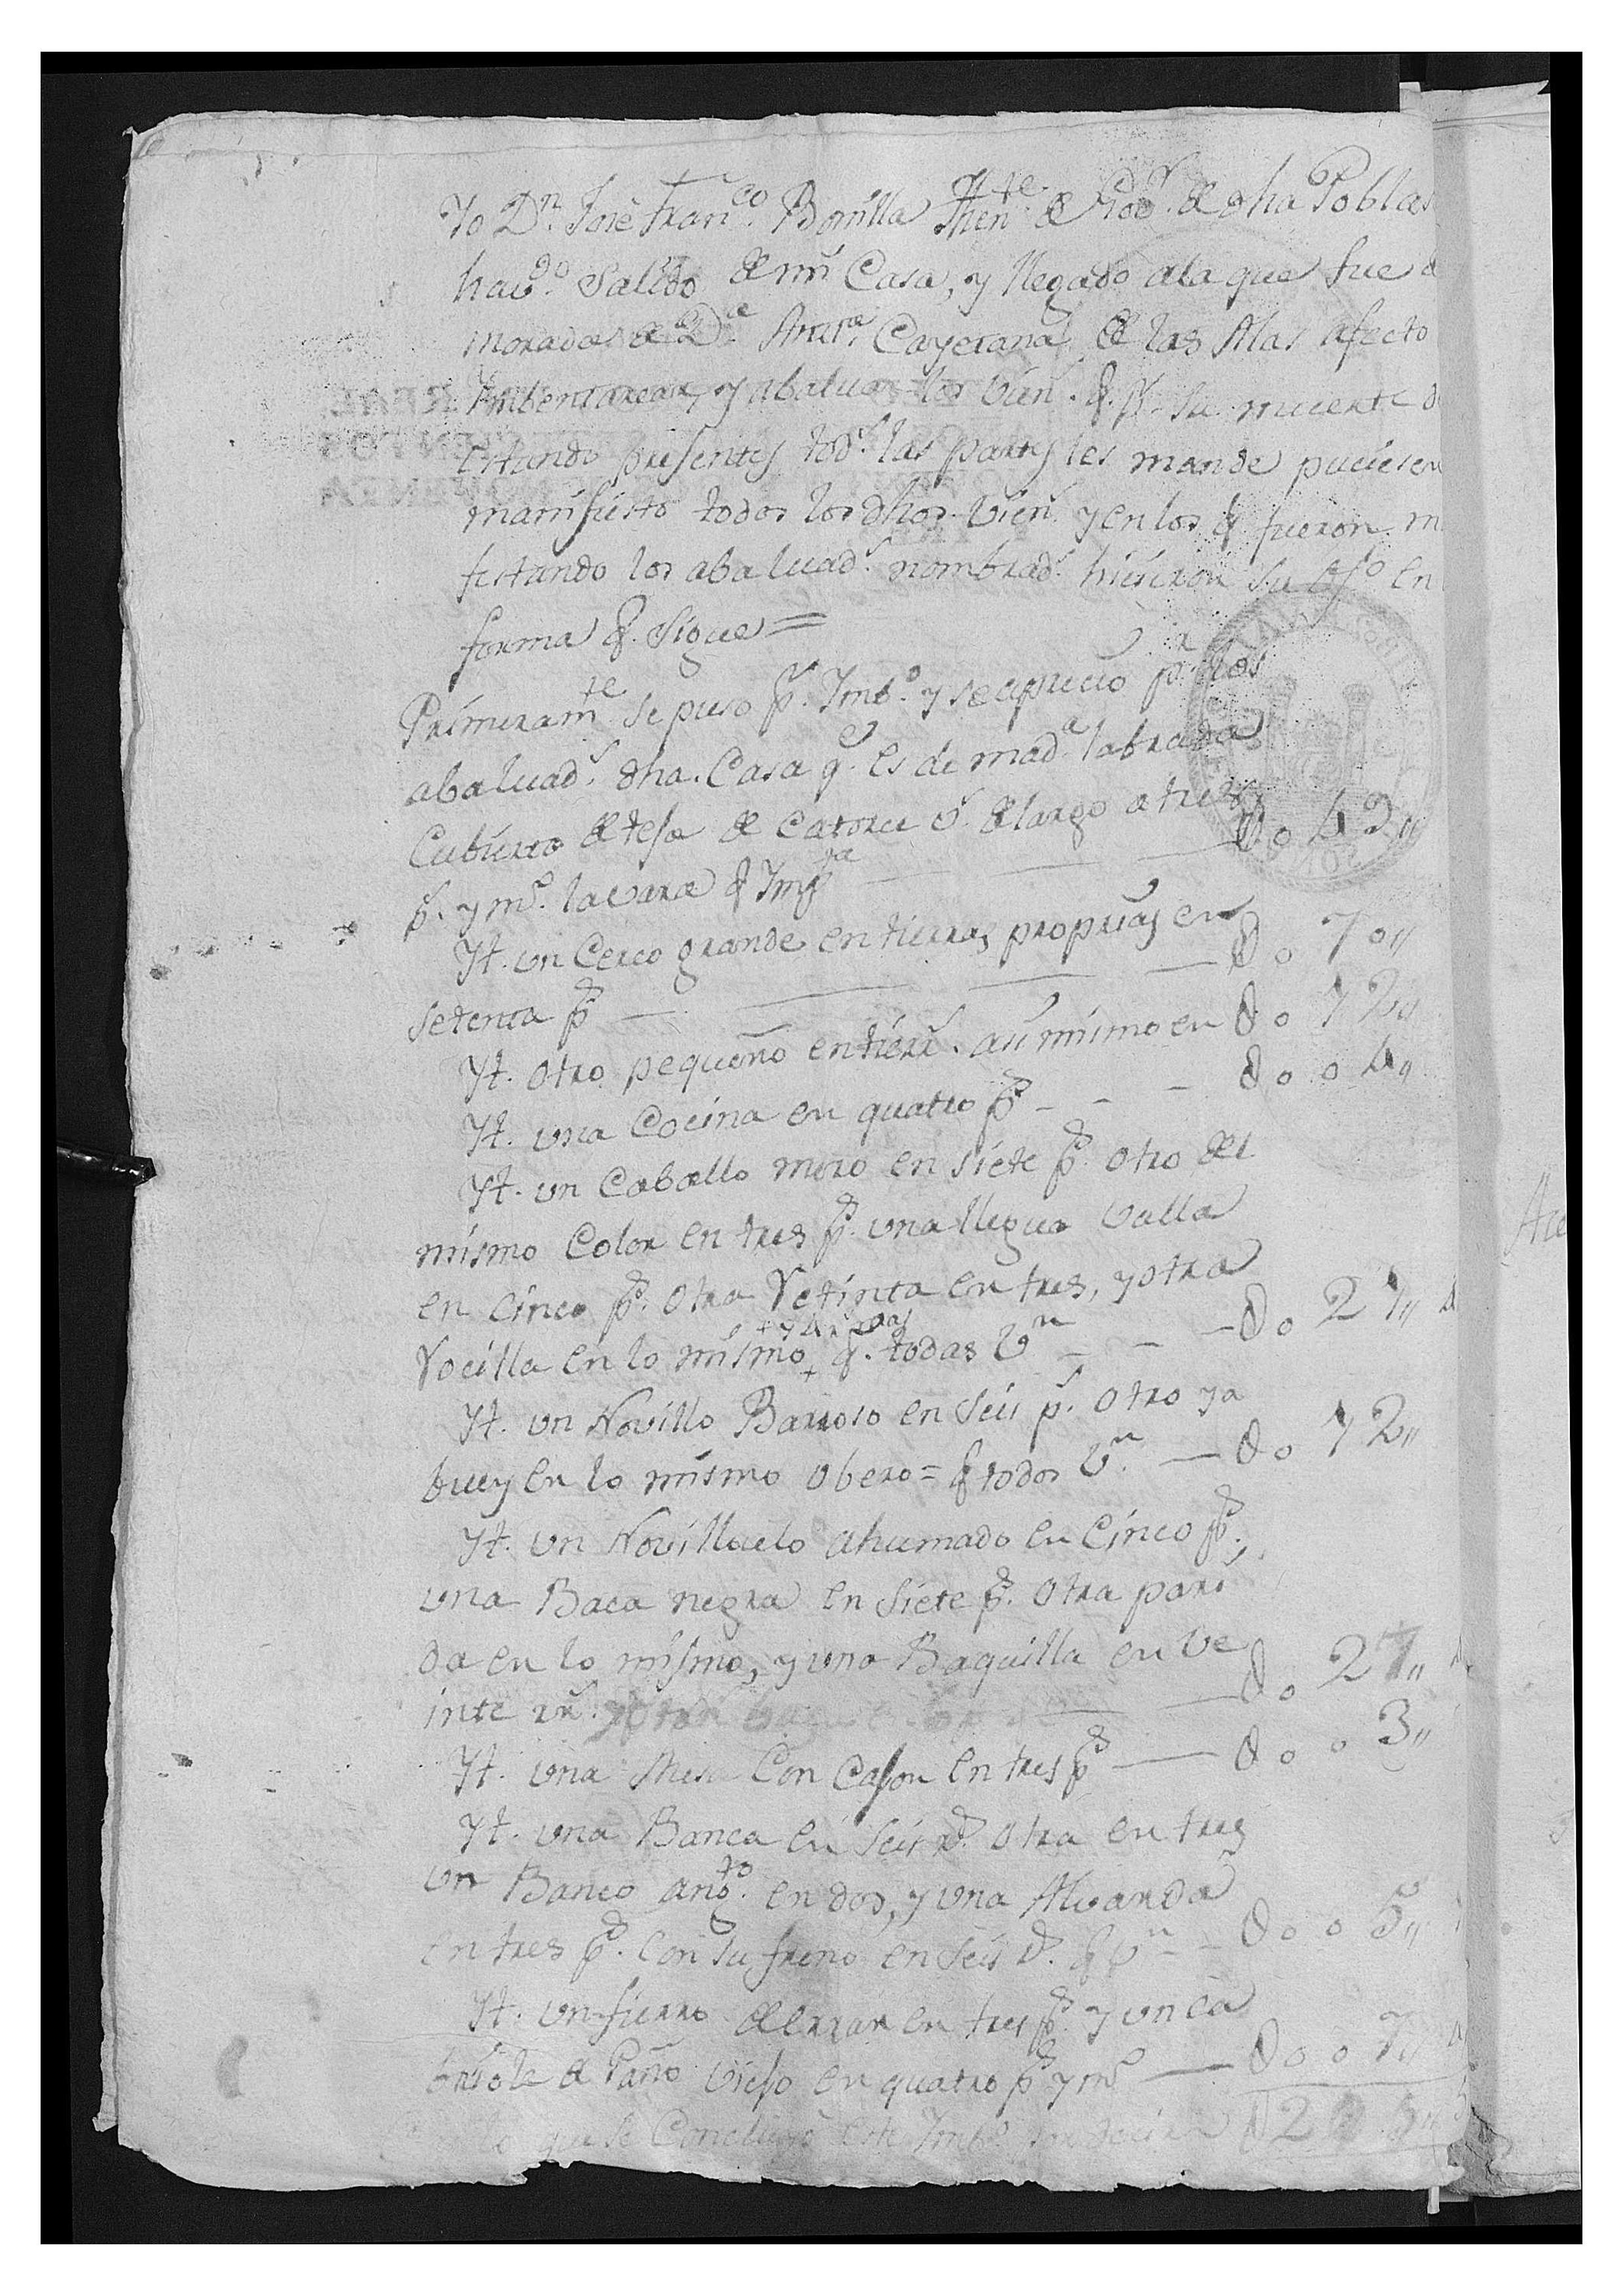 Yo Dn. José Franco. Bonilla Thente. de Govr. de dha Poblas
havdo. Salido de mi Casa, y llegado ala que fue d
morada de Da. Anta. Cayetana de las Alas afecto
Imbentarear, y abaluar los bien. q. pr. su muerte d
estando presentes tods. las partes les mande puciesen
manifiesto todos los dhos. bien. y en los q fueron m
festando los abaluads. nombrads. hicieron su en
forma q. sigue =
Primeramte. se puso pr. Imbo. y se aprecio pr. los
abaluads. dha. Casa qe. es de mada. labrada
Cubierta de teja de Catorce vs. de largo a tres
ps. y mo. la vara q Impta D o 42,,
Yt. un Cerco grande en tierras proprias en
setenta ps D o 70,,
Yt. otro pequeño en tierrs. asi mismo en D o 12,,
Yt. una Cocina en quatro ps D o o 4,,
Yt. un Caballo moro en siete ps. otro del
mismo Color en tres ps. una llegua valla
en Cinco ps. otra retinta en tres, y otra
rocilla en lo mismo q. todas vn D o 21,,
Yt. un Novillo Barroso en seis ps. otro ya
buey en lo mismo obero = q todos vn. D o 12,,
Yt. un Novilluelo ahumado en Cinco ps.,
una Baca negra en siete ps. otra pari
da en lo mismo, y una Baquilla en ve
inte rrs. D o 21,,
Yt. una Mesa Con Cajon en tres ps D o o 3,,
Yt. una Banca en seis rs. otra en tres
un Banco angto. en dos, y una Alvarda
en tres ps. Con su freno en seis rs. q vn D o o 5,,
Yt. un fierro de errar en tres ps. y un ca
briole de Paño viejo en quatro ps y mo D o o 7,,
que se Concluyó este Imbo.